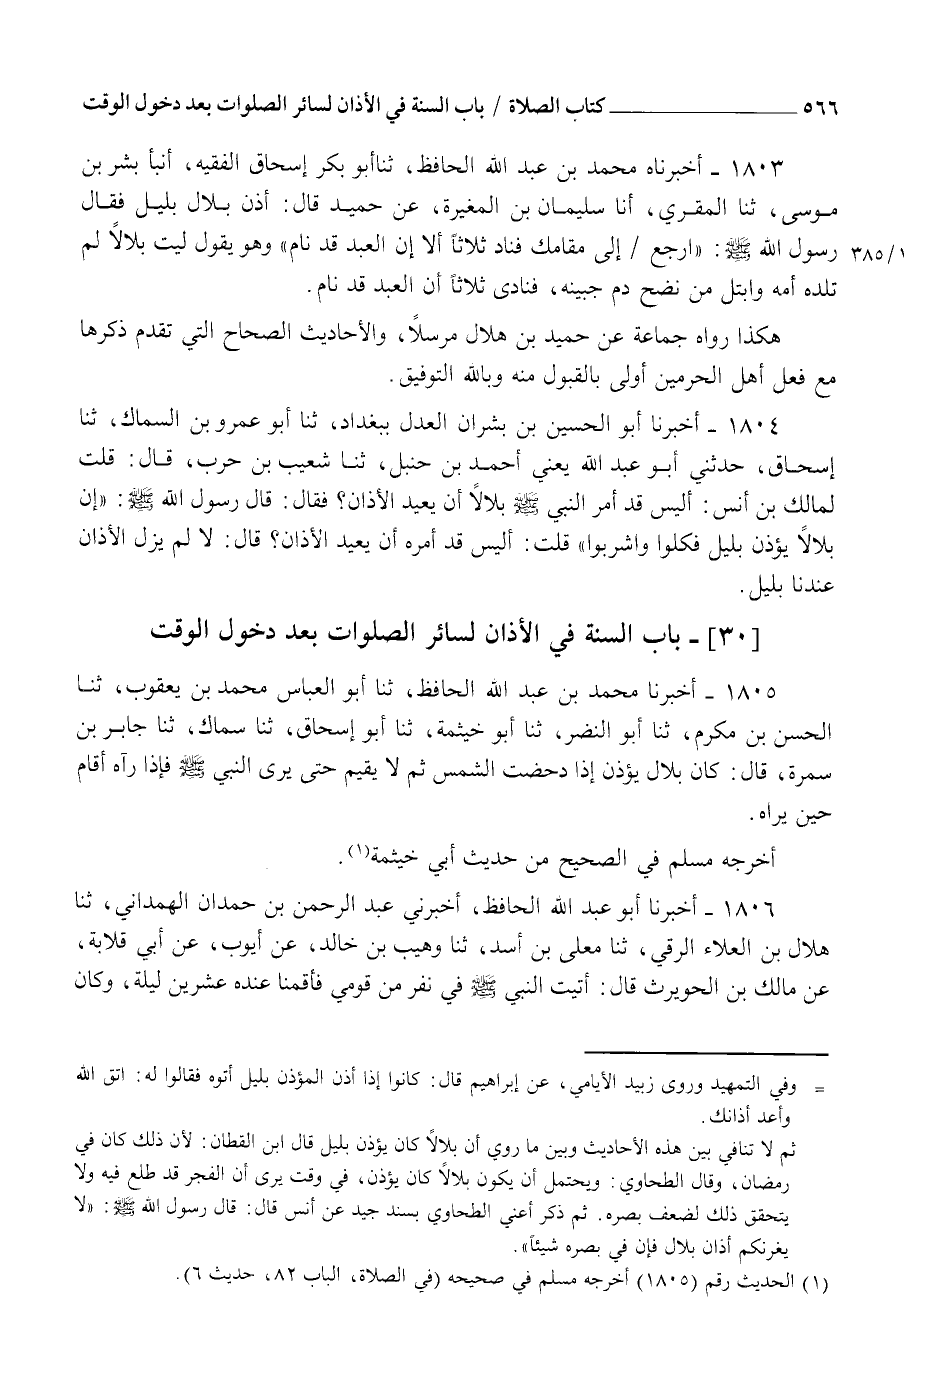 ٥٦٦ ــــــــــــــــــــ كتاب الصلاة / باب السنة في الأذان لسائر الصلوات بعد دخول الوقت
١٨٠٣ ـ أخبرناه محمد بن عبد الله الحافظ، ثناأبو بكر إسحاق الفقيه، أنبأ بشر بن
موسى، ثنا المقري، أنا سليمان بن المغيرة، عن حميد قال: أذن بلال بليل فقال
٣٨٥/١ رسول الله ﷺ: «ارجع / إلى مقامك فناد ثلاثاً ألا إن العبد قد نام» وهو يقول ليت بلالاً لم
تلده أمه وابتل من نضح دم جبينه، فنادى ثلاثاً أن العبد قد نام.
هكذا رواه جماعة عن حميد بن هلال مرسلاً، والأحاديث الصحاح التي تقدم ذكرها
مع فعل أهل الحرمين أولى بالقبول منه وبالله التوفيق.
١٨٠٤ ـ أخبرنا أبو الحسين بن بشران العدل ببغداد، ثنا أبو عمرو بن السماك، ثنا
إسحاق، حدثني أبو عبد الله يعني أحمد بن حنبل، ثنا شعيب بن حرب، قال: قلت
لمالك بن أنس: أليس قد أمر النبي ﷺ بلالاً أن يعيد الأذان؟ فقال: قال رسول الله ﷺ: «إن
بلالاً يؤذن بليل فكلوا واشربوا» قلت: أليس قد أمره أن يعيد الأذان؟ قال: لا لم يزل الأذان
عندنا بليل.
[٣٠] ـ باب السنة في الأذان لسائر الصلوات بعد دخول الوقت
١٨٠٥ ـ أخبرنا محمد بن عبد الله الحافظ، ثنا أبو العباس محمد بن يعقوب، ثنا
الحسن بن مكرم، ثنا أبو النضر، ثنا أبو خيثمة، ثنا أبو إسحاق، ثنا سماك، ثنا جابر بن
سمرة، قال: كان بلال يؤذن إذا دحضت الشمس ثم لا يقيم حتى يرى النبي ﷺ فإذا رآه أقام
حين يراه.
أخرجه مسلم في الصحيح من حديث أبي خيثمة(١).
١٨٠٦ ـ أخبرنا أبو عبد الله الحافظ، أخبرني عبد الرحمن بن حمدان الهمداني، ثنا
هلال بن العلاء الرقي، ثنا معلى بن أسد، ثنا وهيب بن خالد، عن أيوب، عن أبي قلابة،
عن مالك بن الحويرث قال: أتيت النبي ﷺ في نفر من قومي فأقمنا عنده عشرين ليلة، وكان
= وفي التمهيد وروى زبيد الأيامي، عن إبراهيم قال: كانوا إذا أذن المؤذن بليل أتوه فقالوا له: اتق الله
وأعد أذانك.
ثم لا تنافي بين هذه الأحاديث وبين ما روي أن بلالاً كان يؤذن بليل قال ابن القطان: لأن ذلك كان في
رمضان، وقال الطحاوي: ويحتمل أن يكون بلالاً كان يؤذن، في وقت يرى أن الفجر قد طلع فيه ولا
يتحقق ذلك لضعف بصره. ثم ذكر أعني الطحاوي بسند جيد عن أنس قال: قال رسول الله ﷺ: «لا
يغرنكم أذان بلال فإن في بصره شيئاً».
(١) الحديث رقم (١٨٠٥) أخرجه مسلم في صحيحه (في الصلاة، الباب ٨٢، حديث ٦).